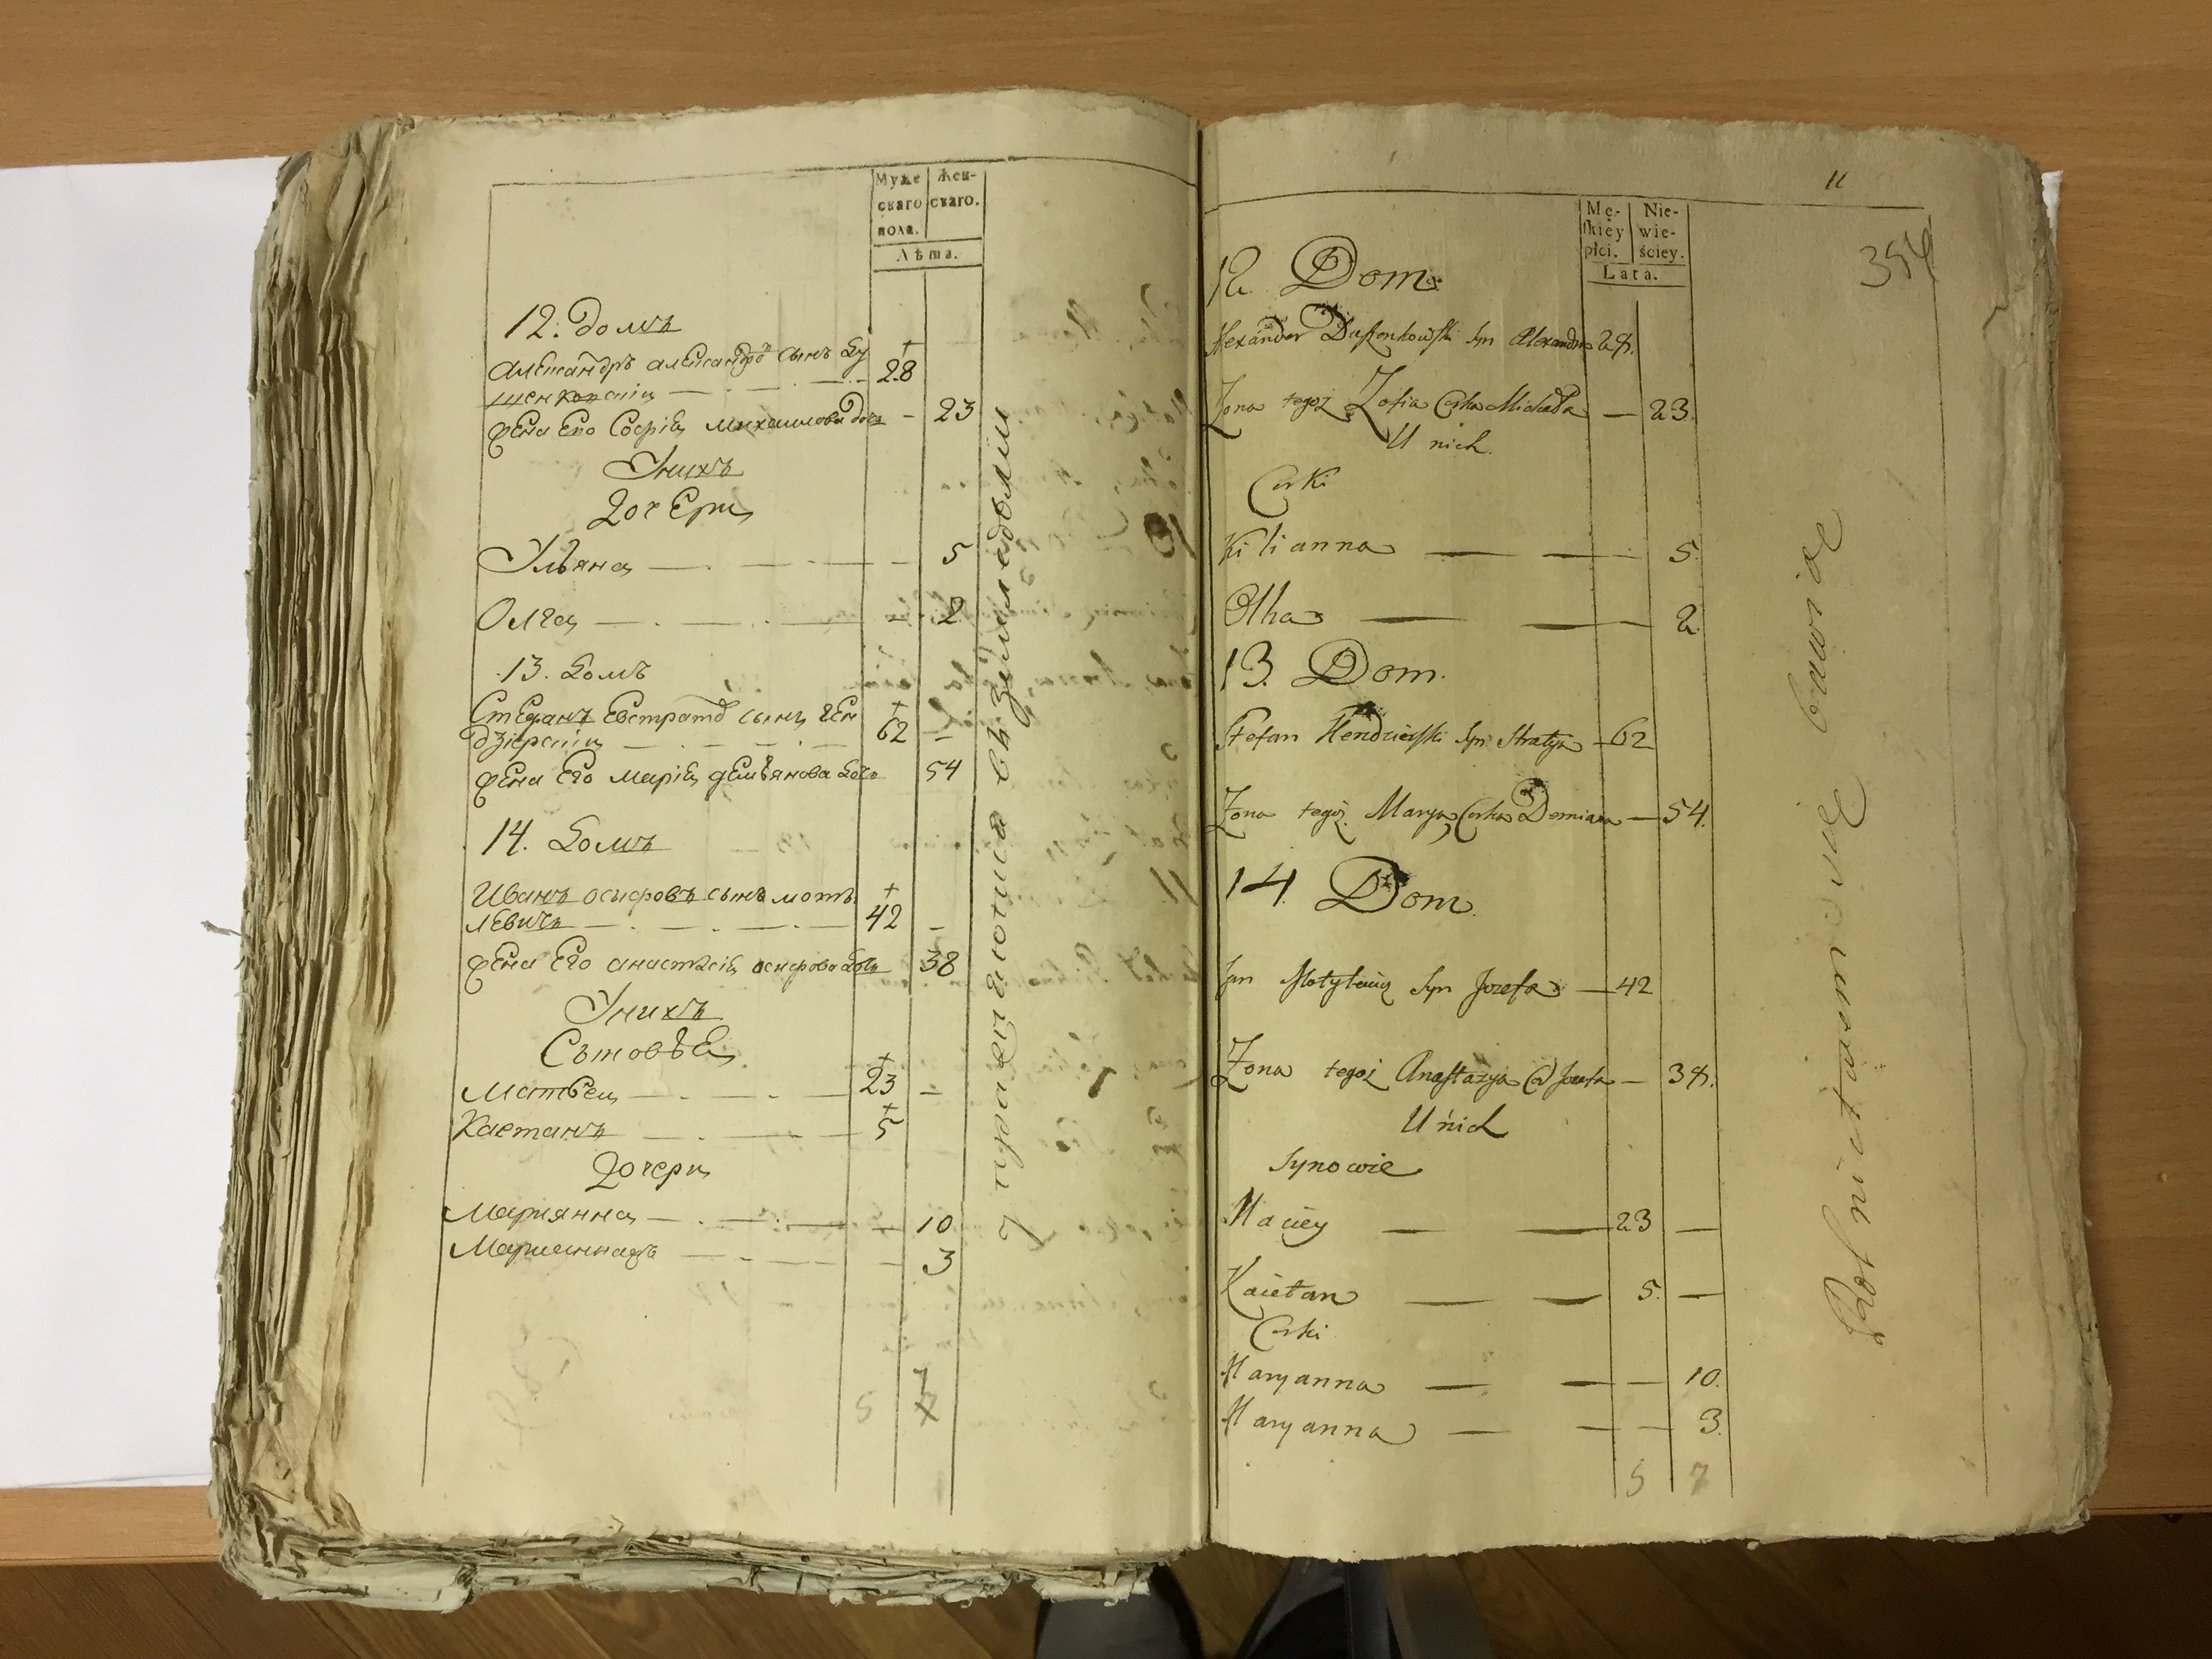 Муже
скаго
пола.
Жен-
скаго.
Лѣта.
12. домъ
Александръ александро сынъ Бу
28
жена Его Софія михаилова дочь - 23
Унихъ
дочЕри
Ульяна - 5
Олга - 2
13. домъ
СтЕфанъ Евстратов сынъ
62 -
жена Его марія дЕмьянова дочь 54
14. домъ
Иванъ осифовъ сынъ моты
лЕвичъ 42 -
жена Его анастасія осифова дочь 38
Унихъ
СыновьЕ
Матвей 23 -
Каетанъ 5
дочери
Мариянна - 10
Марианна - 3
5 7
упражняются въ земледелии
11
354
Mę-
skiey
płci.
Nie-
wie-
ściey.
Lata.
12 Dom
Alexander syn Alexandra 28.
Zona tegoż Zofia Corka Michała — 23.
U nich
Corki
Kilianna — — 5.
Olha — — 2.
13. Dom.
Stefan syn 62
Zona tegoż Marya Corka Demiana — 54.
14. Dom.
Jan Motylewicz Syn Jozefa — 42
Zona tegoż Anastazya C Jozefa — 38.
U nich
Synowie
Maciey — — 23 —
Kaietan — — 5. —
Corki
Maryanna — — — 10.
Maryanna — — — 3.
5 7
Rolnictwem się bawią